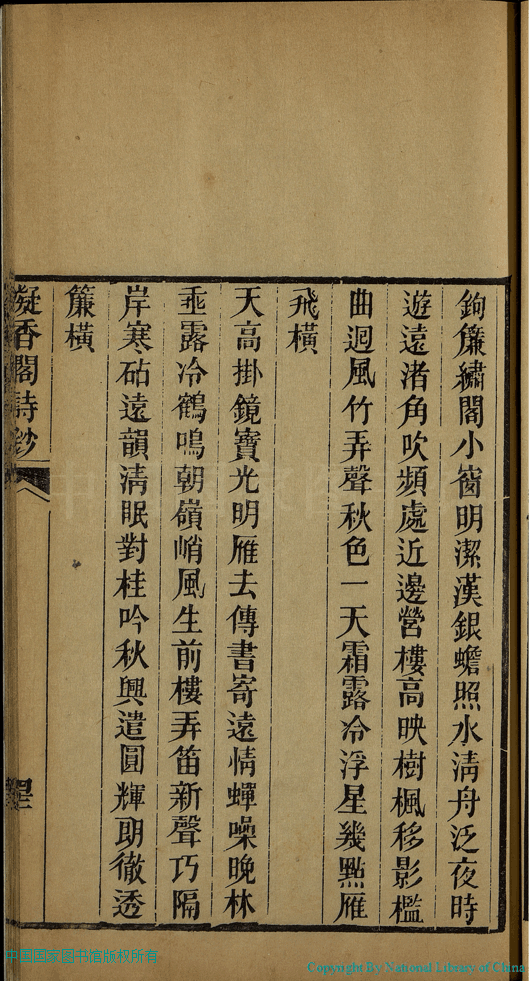 鉤簾繡閣小窗明潔漢銀蟾照水淸舟泛夜時
遊遠渚角吹頻處近邊營樓高映樹楓移影檻
曲迴風竹弄聲秋色一天霜露冷浮星幾點雁
飛橫
天高掛鏡寶光明雁去傳書寄遠情蟬噪晚林
垂露冷鶴鳴朝嶺峭風生前樓弄笛新聲巧隔
岸寒砧遠韻淸眠對桂吟秋興遣圓輝朗徹透
簾橫
凝香閣詩鈔
中国国家图书馆版权所有
Copyright By National Library of China